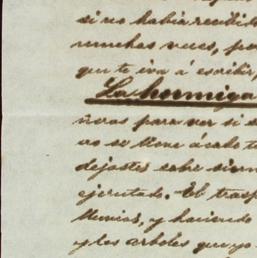 si no habia recibido
muchas veces, po
que te iva á escribir,
La hormiga
ñeros para ver si e
vo se llene á cabo t
dejastes sobre sium
ejecutado. El trasp
Munios, y haciendo
y los arboles que yo